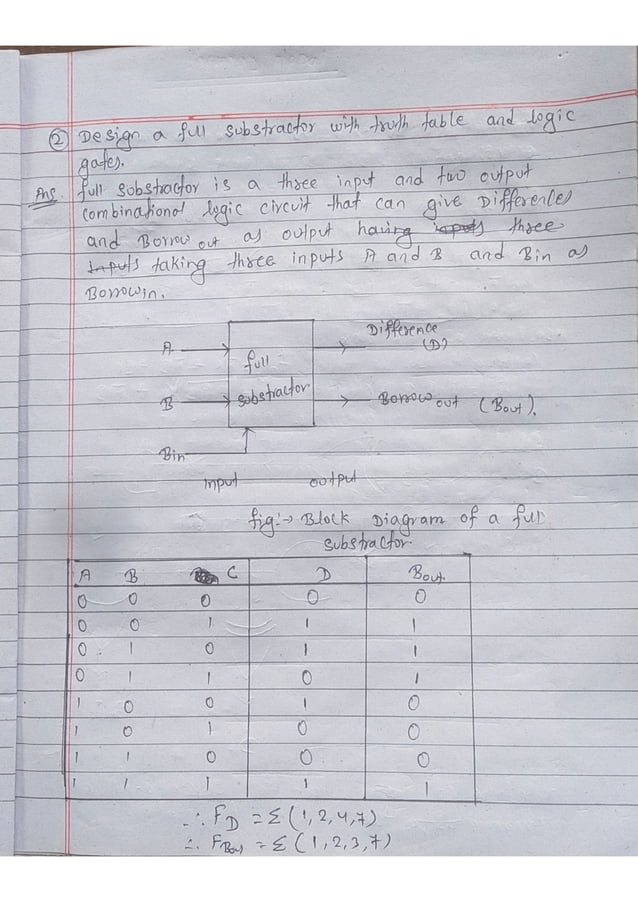 ② Design a full substractor with truth table and logic
gates.
Ans full substractor is a three input and two output
combinational logic circuit that can give Differences
and Borrow out as output having inputs three
inputs taking three inputs A and B and Bin as
Borrowin.
A
full
substractor
Difference
(D)
B
Borrow out (Bout).
Bin
input output
fig:→ Block Diagram of a full
substractor.
A B C D Bout
0 0 0 0 0
0 0 1 1 1
0 1 0 1 1
0 1 1 0 1
1 0 0 1 0
1 0 1 0 0
1 1 0 0 0
1 1 1 1 1
∴ FD = Σ(1,2,4,7)
∴ FBout = Σ(1,2,3,7)